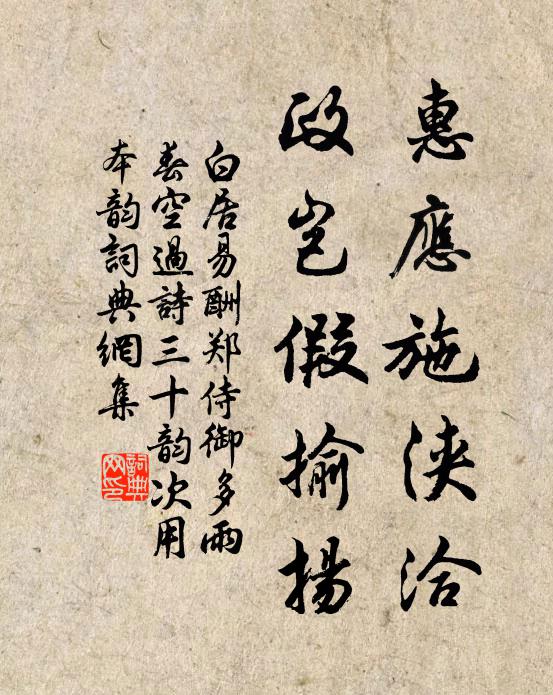 惠應施浹洽
政豈假揄揚
白居易酬郑侍御多雨
春空過詩三十韵次用
本韵詞典網集
詞典網印